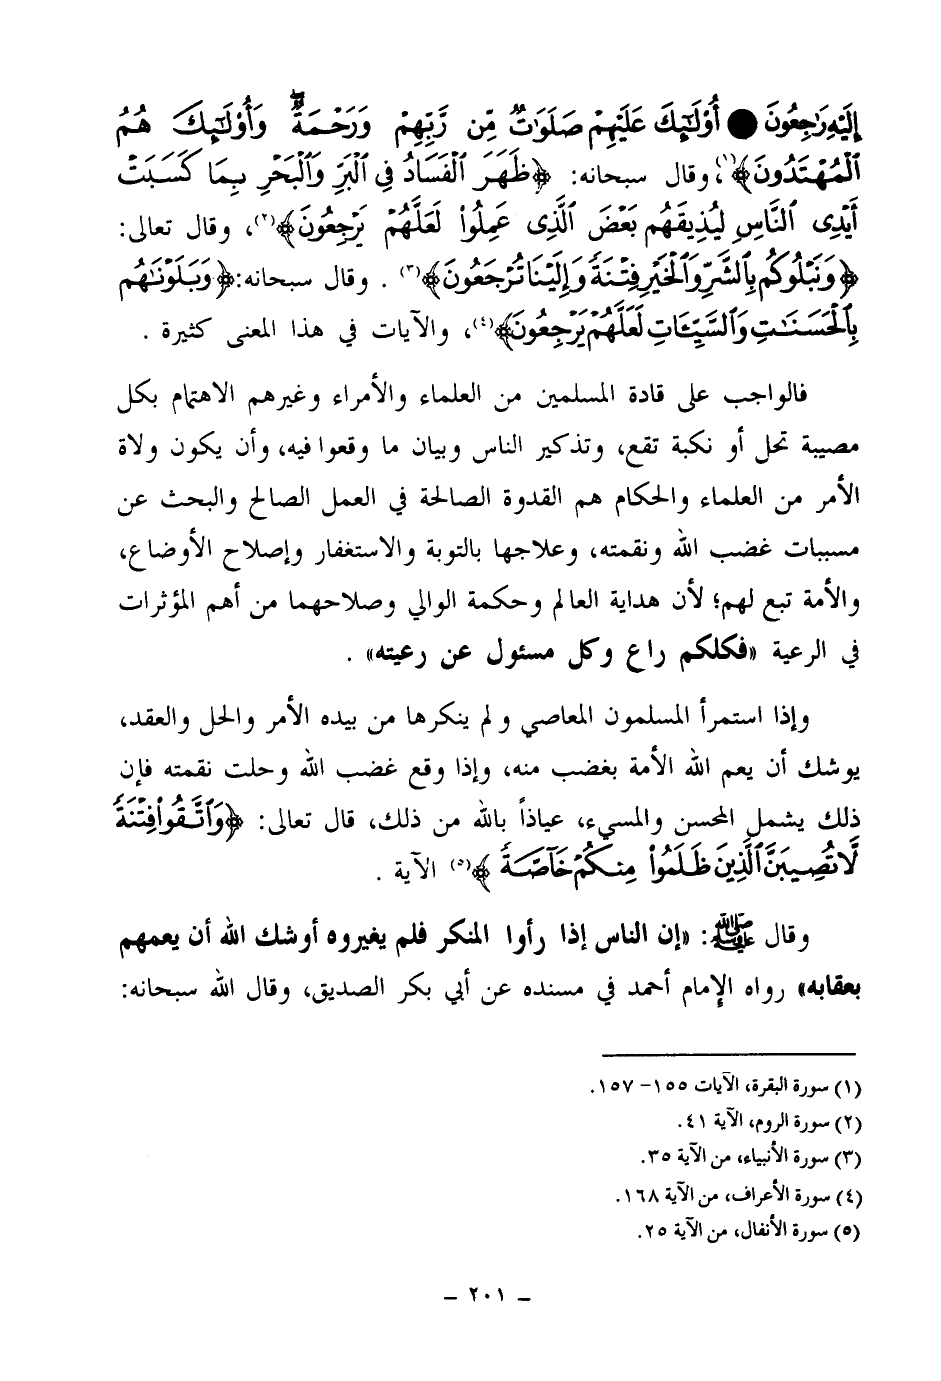 إِلَيْهِ رَٰجِعُونَ ● أُو۟لَٰٓئِكَ عَلَيْهِمْ صَلَوَٰتٌ مِّن رَّبِّهِمْ وَرَحْمَةٌ ۖ وَأُو۟لَٰٓئِكَ هُمُ
ٱلْمُهْتَدُونَ﴾(١)، وقال سبحانه: ﴿ظَهَرَ ٱلْفَسَادُ فِي ٱلْبَرِّ وَٱلْبَحْرِ بِمَا كَسَبَتْ
أَيْدِى ٱلنَّاسِ لِيُذِيقَهُم بَعْضَ ٱلَّذِى عَمِلُوا۟ لَعَلَّهُمْ يَرْجِعُونَ﴾(٢)، وقال تعالى:
﴿وَنَبْلُوكُم بِٱلشَّرِّ وَٱلْخَيْرِ فِتْنَةً وَإِلَيْنَا تُرْجَعُونَ﴾(٣) . وقال سبحانه: ﴿وَبَلَوْنَٰهُم
بِٱلْحَسَنَٰتِ وَٱلسَّيِّـَٔاتِ لَعَلَّهُمْ يَرْجِعُونَ﴾(٤)، والآيات في هذا المعنى كثيرة .
فالواجب على قادة المسلمين من العلماء والأمراء وغيرهم الاهتمام بكل
مصيبة تحل أو نكبة تقع، وتذكير الناس وبيان ما وقعوا فيه، وأن يكون ولاة
الأمر من العلماء والحكام هم القدوة الصالحة في العمل الصالح والبحث عن
مسببات غضب الله ونقمته، وعلاجها بالتوبة والاستغفار وإصلاح الأوضاع،
والأمة تبع لهم؛ لأن هداية العالم وحكمة الوالي وصلاحهما من أهم المؤثرات
في الرعية «فكلكم راع وكل مسئول عن رعيته» .
وإذا استمرأ المسلمون المعاصي ولم ينكرها من بيده الأمر والحل والعقد،
يوشك أن يعم الله الأمة بغضب منه، وإذا وقع غضب الله وحلت نقمته فإن
ذلك يشمل المحسن والمسيء، عياذاً بالله من ذلك، قال تعالى: ﴿وَٱتَّقُوا۟ فِتْنَةً
لَّا تُصِيبَنَّ ٱلَّذِينَ ظَلَمُوا۟ مِنكُمْ خَآصَّةً﴾(٥) الآية .
وقال ﷺ: «إن الناس إذا رأوا المنكر فلم يغيروه أوشك الله أن يعمهم
بعقابه» رواه الإمام أحمد في مسنده عن أبي بكر الصديق، وقال الله سبحانه:
(١) سورة البقرة، الآيات ١٥٥ – ١٥٧.
(٢) سورة الروم، الآية ٤١.
(٣) سورة الأنبياء، من الآية ٣٥.
(٤) سورة الأعراف، من الآية ١٦٨.
(٥) سورة الأنفال، من الآية ٢٥.
– ٢٠١ –